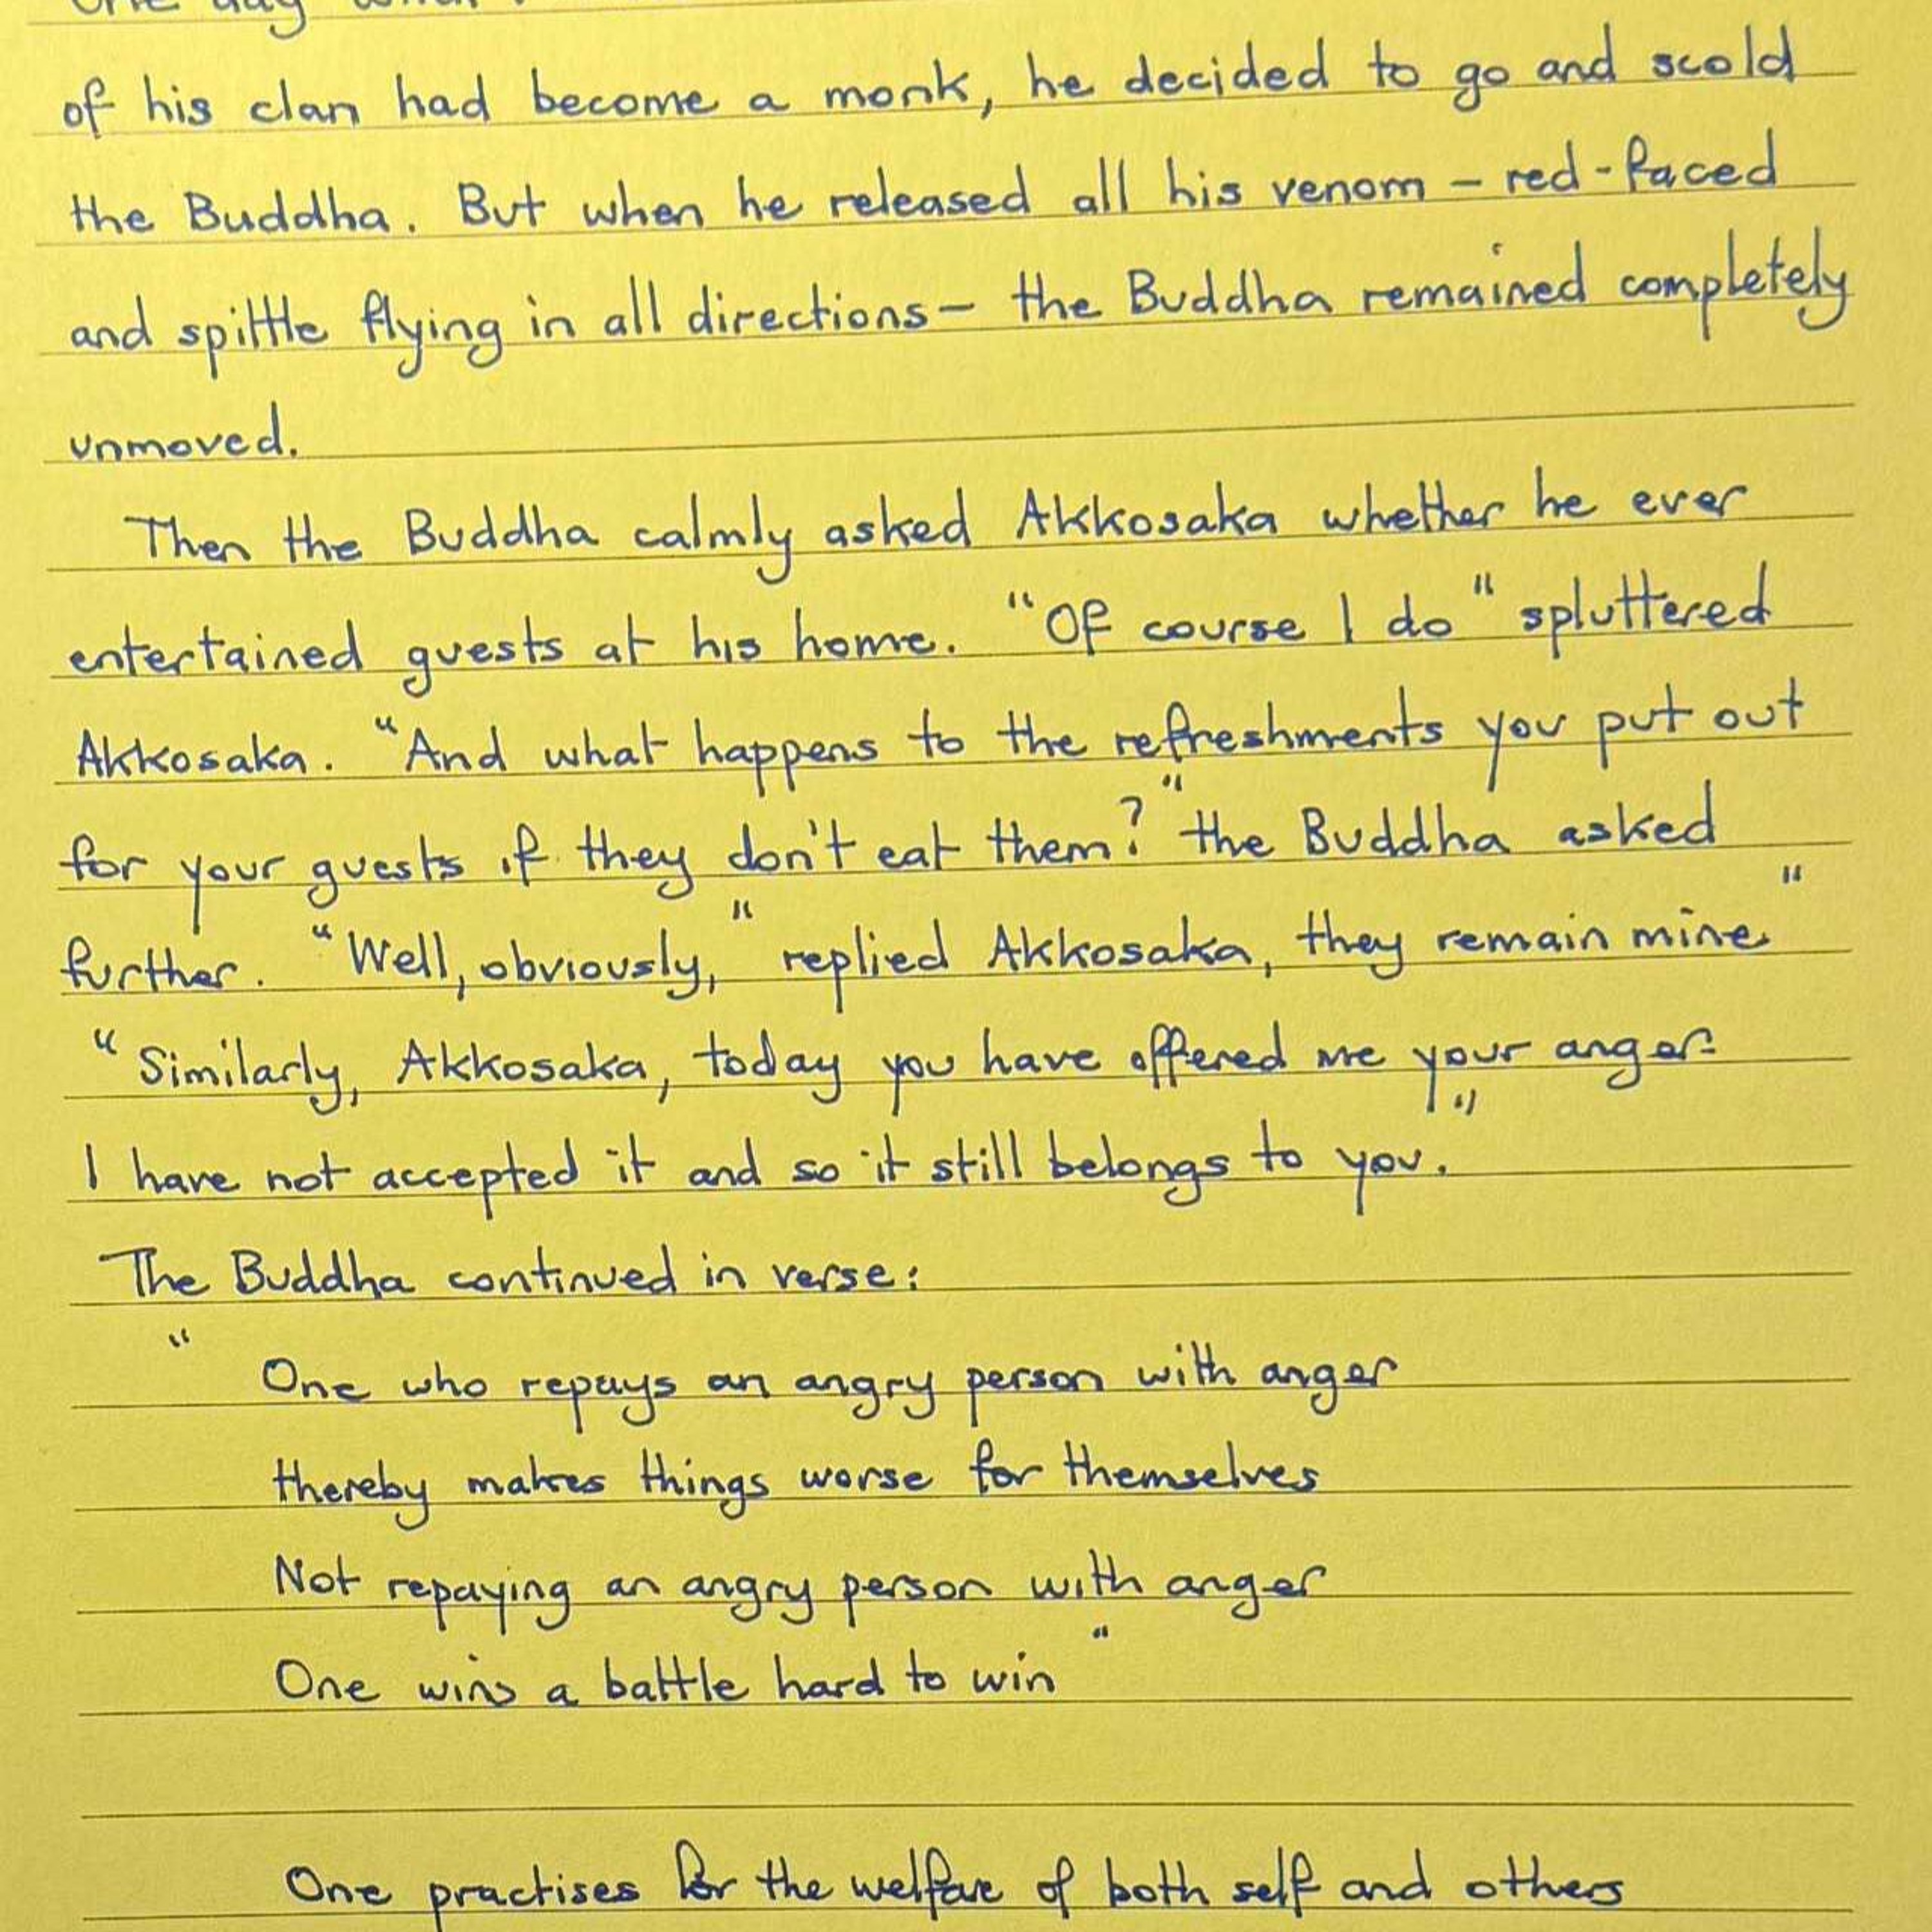 One day
of his clan had become a monk, he decided to go and scold
the Buddha. But when he released all his venom – red-faced
and spittle flying in all directions – the Buddha remained completely
unmoved.
Then the Buddha calmly asked Akkosaka whether he ever
entertained guests at his home. "Of course I do" spluttered
Akkosaka. "And what happens to the refreshments you put out
for your guests if they don't eat them?" the Buddha asked
further. "Well, obviously," replied Akkosaka, they remain mine"
"Similarly, Akkosaka, today you have offered me your anger
I have not accepted it and so it still belongs to you."
The Buddha continued in verse:
"One who repays an angry person with anger
thereby makes things worse for themselves
Not repaying an angry person with anger
One wins a battle hard to win"
One practises for the welfare of both self and others